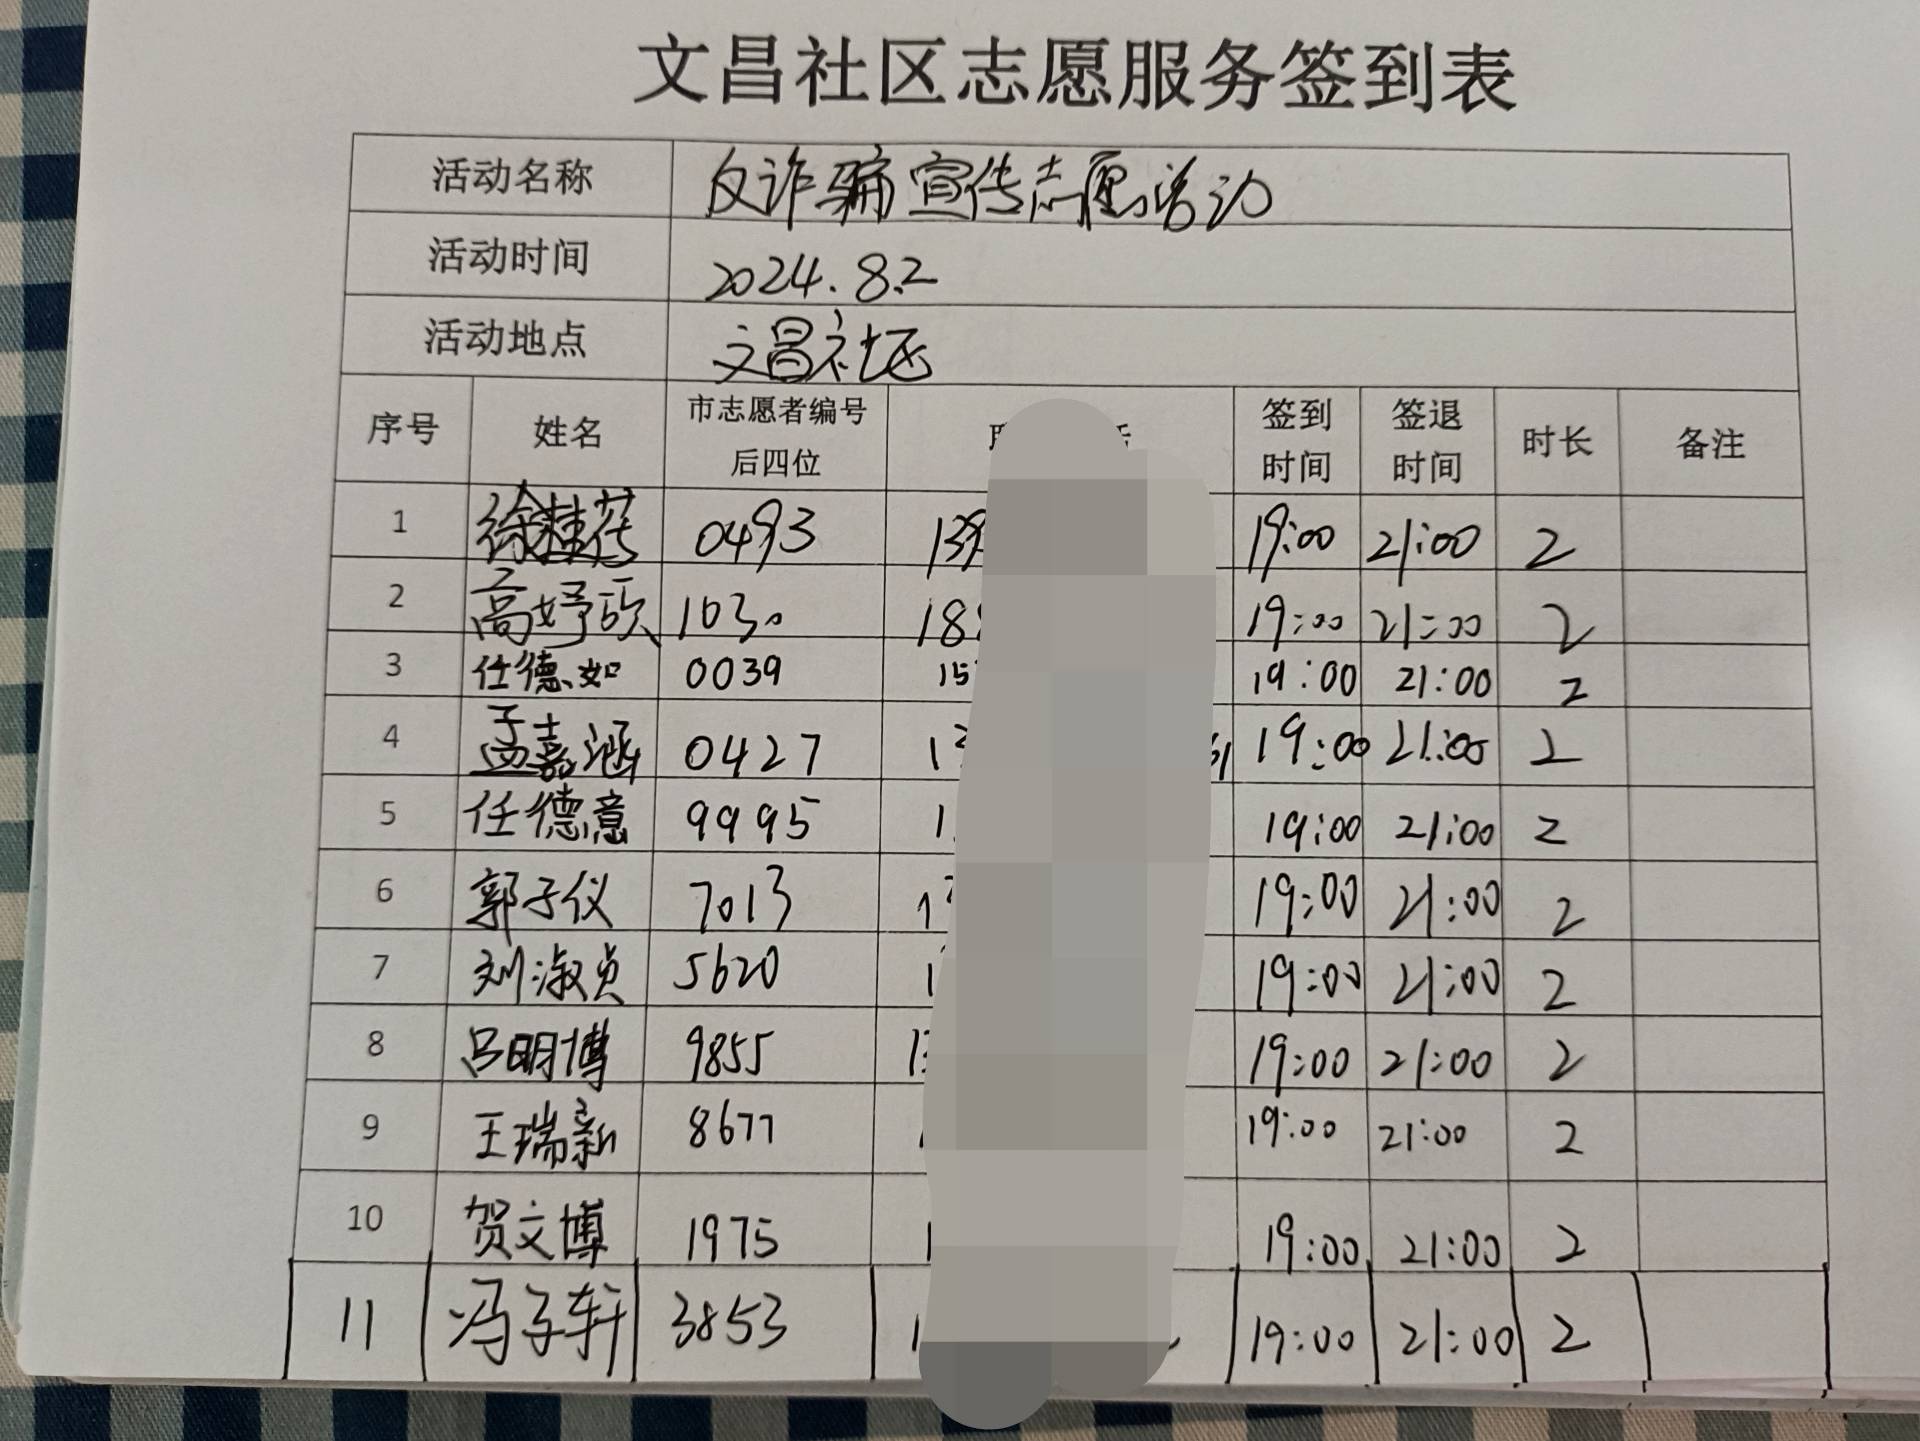 文昌社区志愿服务签到表
活动名称 反诈骗宣传志愿活动
活动时间 2024.8.2
活动地点 文昌社区
序号 姓名 市志愿者编号后四位 签到时间 签退时间 时长 备注
1 徐桂 0493 139 19:00 21:00 2
2 高妤 1030 188 19:00 21:00 2
3 任德如 0039 15 19:00 21:00 2
4 孟嘉涵 0427 1 19:00 21:00 2
5 任德意 9995 1 19:00 21:00 2
6 郭子仪 7013 1 19:00 21:00 2
7 刘淑贞 5620 1 19:00 21:00 2
8 吕明博 9855 13 19:00 21:00 2
9 王瑞新 8677 19:00 21:00 2
10 贺文博 1975 1 19:00 21:00 2
11 冯子轩 3853 1 19:00 21:00 2